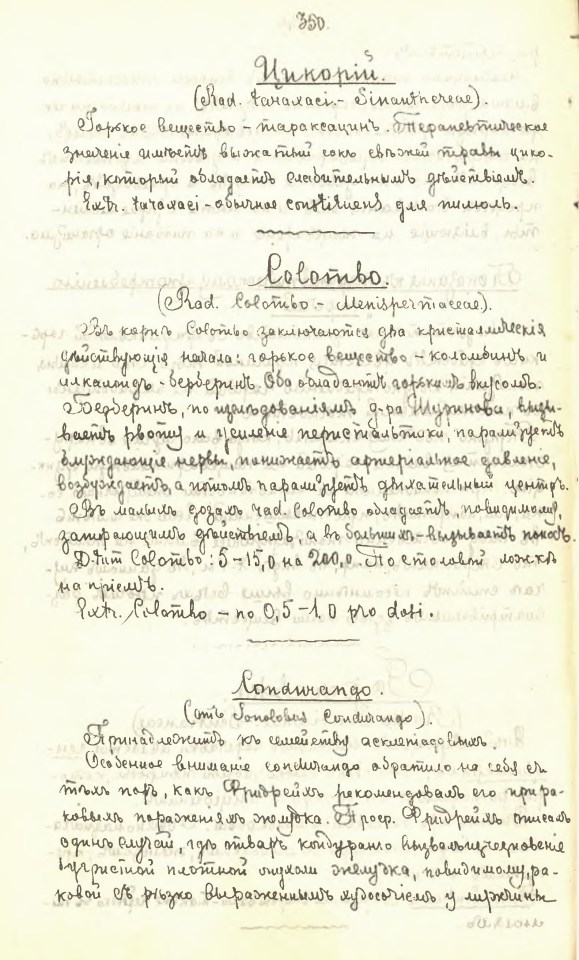 350.
Цикорій.
(Rad. taraxaci. - Sinanthereae).
Горькое вещество - тараксацинъ. Терапевтическое
значеніе имѣетъ выжатый сокъ свѣжей травы цико-
рія, который обладаетъ слабительнымъ дѣйствіемъ.
Extr. taraxaci - обычное constituens для пилюль.
Colombo.
(Rad. Colombo - Menispermaceae).
Въ корнѣ Colombo заключаются два кристаллическія
дѣйствующія начала: горькое вещество - коломбинъ и
алкалоидъ - берберинъ. Оба обладаютъ горькимъ вкусомъ.
Берберинъ, по изслѣдованіямъ д-ра вызы-
ваетъ рвоту и усиленіе перистальтики, парализуетъ
блуждающіе нервы, понижаетъ артеріальное давленіе,
возбуждаетъ, а потомъ парализуетъ дыхательный центръ.
Въ малыхъ дозахъ rad. Colombo обладаетъ, повидимому,
запирающимъ дѣйствіемъ, а въ большихъ - вызываетъ поносъ.
D-tum Colombo: 5-15,0 на 200,0. По столовой ложкѣ
на пріемъ.
Extr. Colombo - по 0,5-1,0 pro dosi.
Condurango.
(отъ Gonolobus Condurango).
Принадлежитъ къ семейству асклепіадовыхъ.
Особенное вниманіе condurango обратило на себя съ
тѣхъ поръ, какъ Фридрейхъ рекомендовалъ его при ра-
ковыхъ пораженіяхъ желудка. Проф. Фридрейхъ описалъ
одинъ случай, гдѣ отваръ кондуранго вызвалъ исчезновеніе
бугристой плотной опухоли желудка, повидимому, ра-
ковой съ рѣзко выраженнымъ худосочіемъ у мужчины